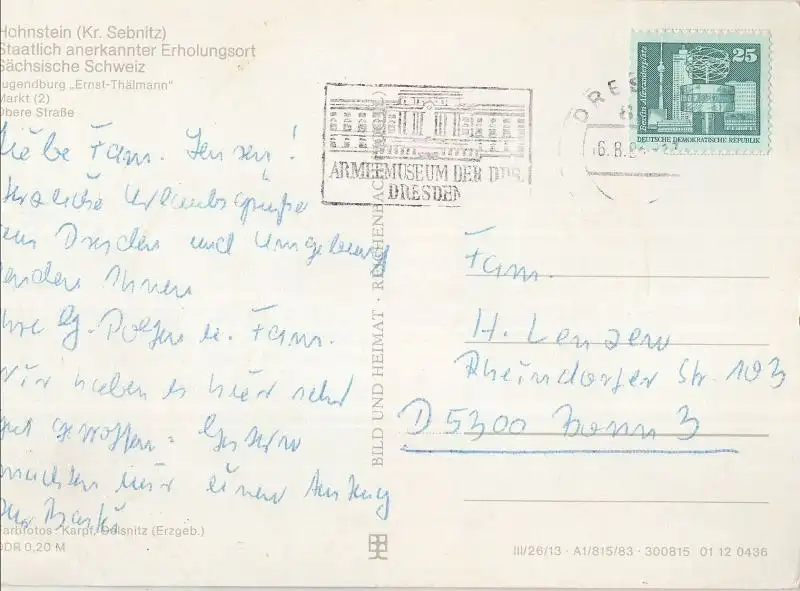 Hohnstein (Kr. Sebnitz)
Staatlich anerkannter Erholungsort
Sächsische Schweiz
Jugendburg „Ernst-Thälmann"
Markt (2)
Obere Straße
Liebe Fam. Lenzen!
Herzliche Urlaubsgrüße
aus Dresden und Umgebung
senden Ihnen
Ihre
u. Fam.
Wir haben es hier sehr
gut getroffen. Gestern
machten wir einen Ausflug
zur Bastei
Farbfotos: Karpf, Oelsnitz (Erzgeb.)
DDR 0,20 M
BILD UND HEIMAT · REICHENBACH
ARMEEMUSEUM DER DDR
DRESDEN
DRES
6.8.8
Berlin, Alexanderplatz
25
DEUTSCHE DEMOKRATISCHE REPUBLIK
Fam.
H. Lenzen
Rheindorfer Str. 103
D 5300 Bonn 3
III/26/13 · A1/815/83 · 300815 01 12 0436